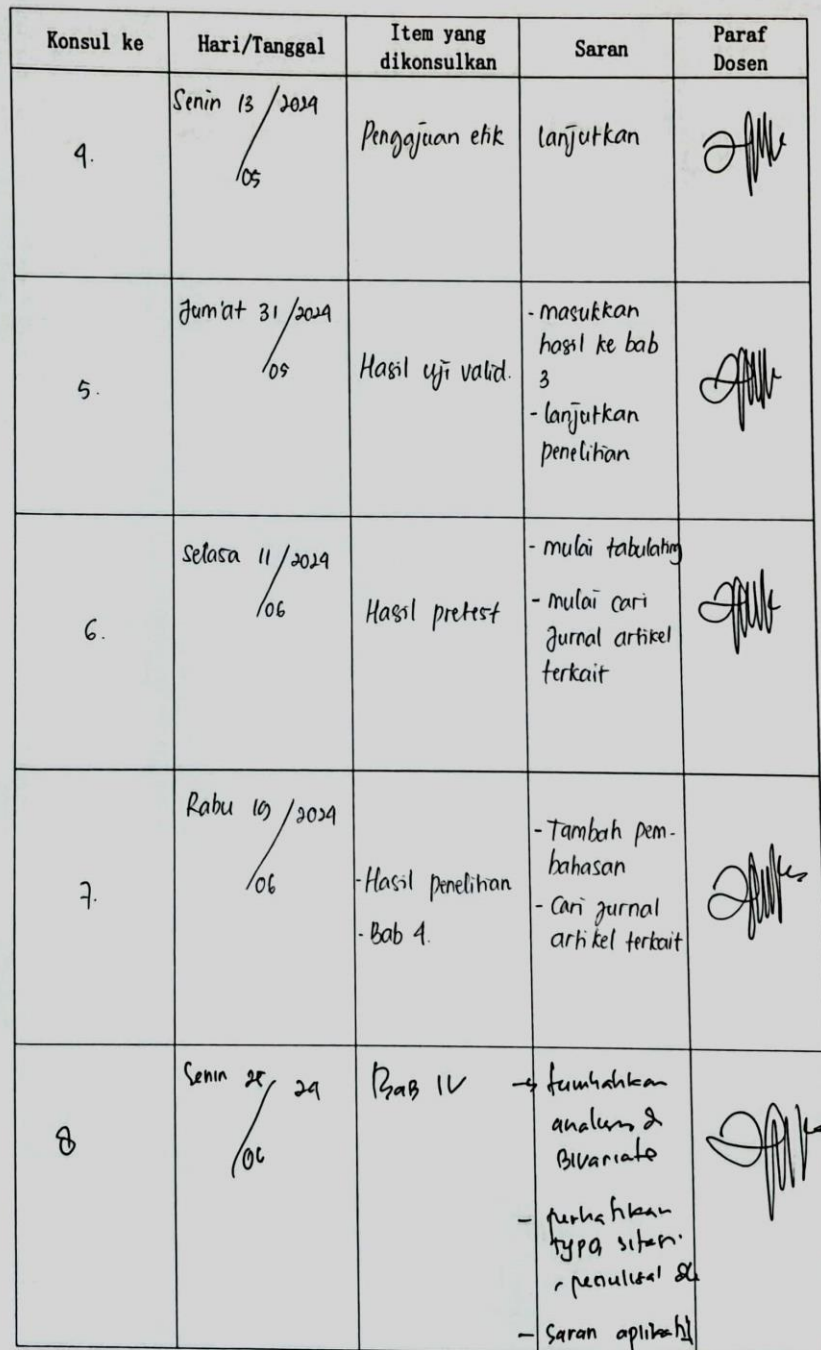 Konsul ke
Hari/Tanggal
Item yang
dikonsulkan
Saran
Paraf
Dosen
4.
Senin 13/05/2024
Pengajuan etik
lanjutkan
5.
Jum'at 31/05/2024
Hasil uji valid.
- masukkan
hasil ke bab
3
- lanjutkan
penelitian
6.
Selasa 11/06/2024
Hasil pretest
- mulai tabulating
- mulai cari
jurnal artikel
terkait
7.
Rabu 19/06/2024
- Hasil penelitian
- Bab 4.
- Tambah pem-
bahasan
- Cari jurnal
artikel terkait
8
Senin 24
Bab IV
→ tambahkan
analisis
Bivariate
- perhatikan
typo, sitasi
penulisan
- Saran aplikatif